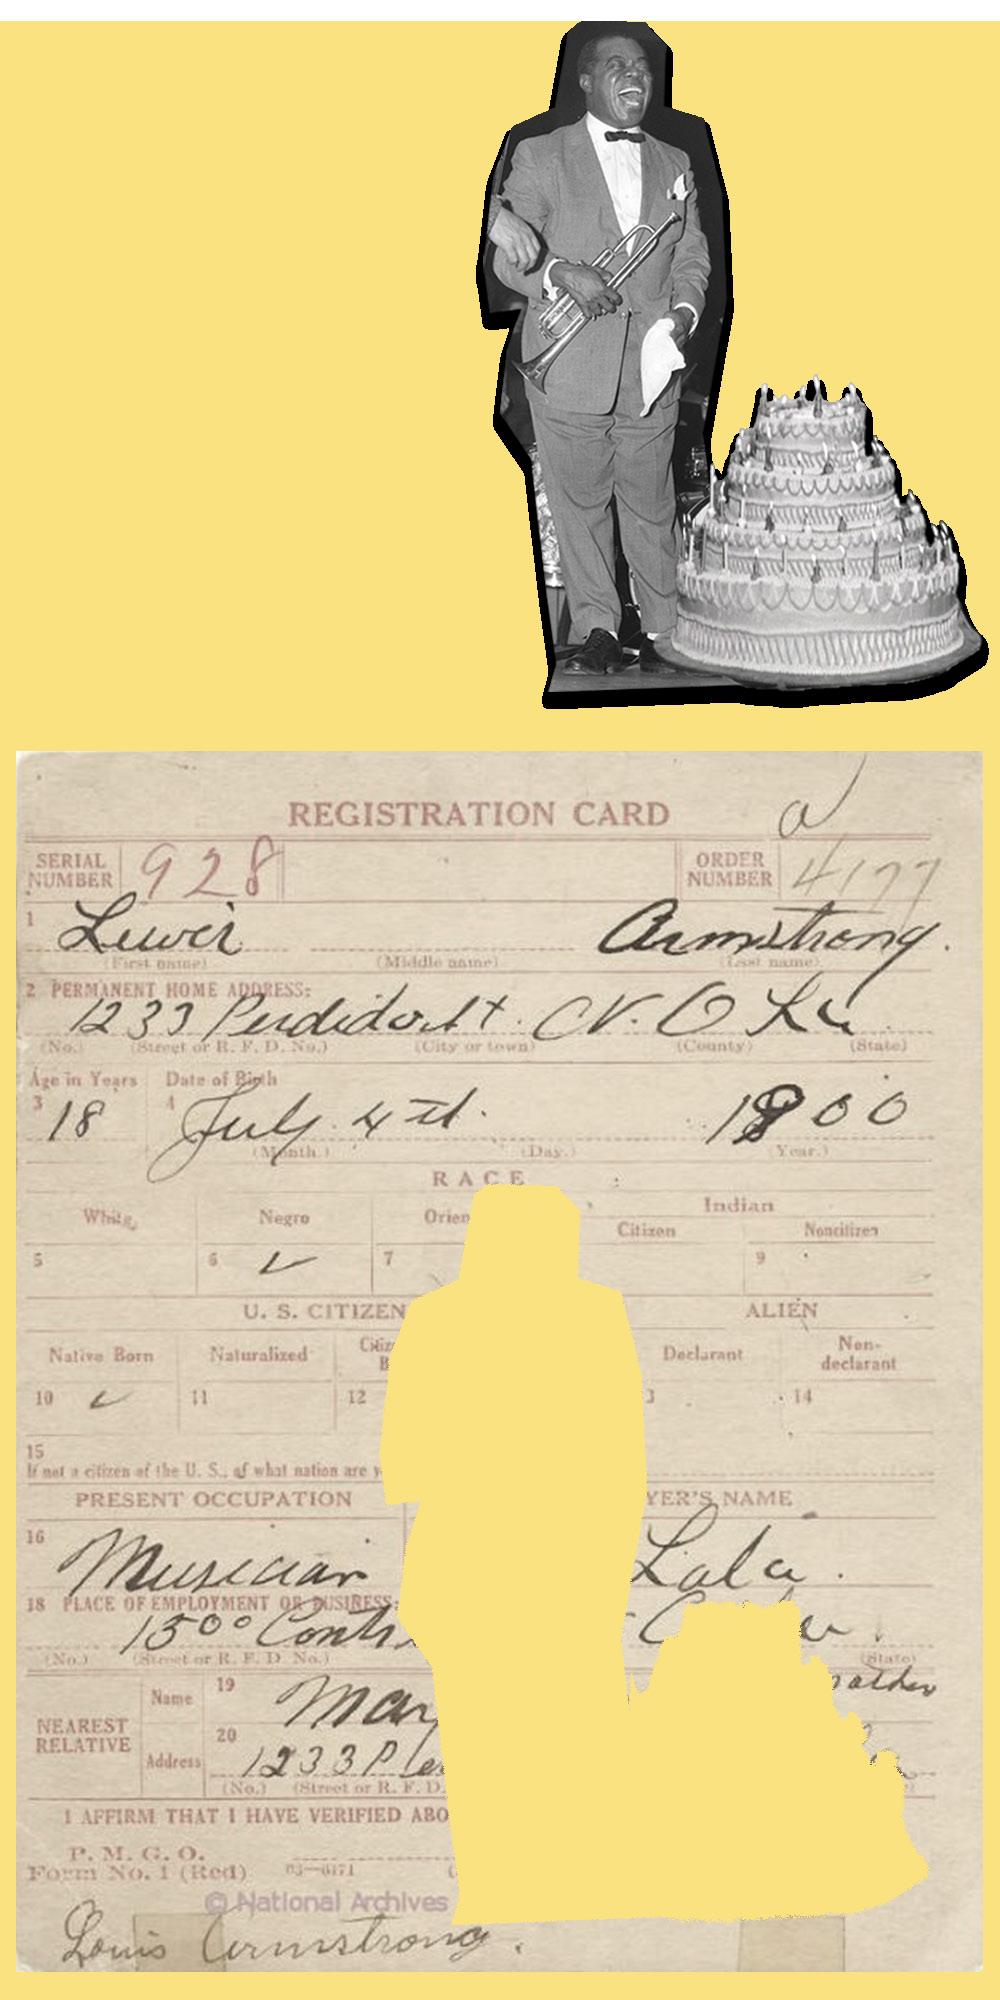 REGISTRATION CARD
SERIAL NUMBER 928 ORDER NUMBER 4177
1 Lewis Armstrong.
(First name) (Middle name) (Last name)
2 PERMANENT HOME ADDRESS:
1233 Perdido St. N. O La.
(No.) (Street or R. F. D. No.) (City or town) (County) (State)
Age in Years Date of Birth
3 18 4 July 4th. 1900
(Month.) (Day.) (Year.)
RACE
White Negro Orien Indian
Citizen Noncitizen
5 6 ✓ 7 9
U. S. CITIZEN ALIEN
Native Born Naturalized Declarant Non-declarant
10 ✓ 11 12 3 14
15
If not a citizen of the U. S., of what nation are y
PRESENT OCCUPATION YER'S NAME
16 Musician Lala.
18 PLACE OF EMPLOYMENT OR BUSINESS:
1500 Cont
(No.) (Street or R. F. D. No.) (State)
NEAREST RELATIVE
Name 19 Mary
Address 20 1233 Per
(No.) (Street or R. F. D.
I AFFIRM THAT I HAVE VERIFIED ABO
P. M. G. O.
Form No. 1 (Red) 03—6171
© National Archives
Louis Armstrong.